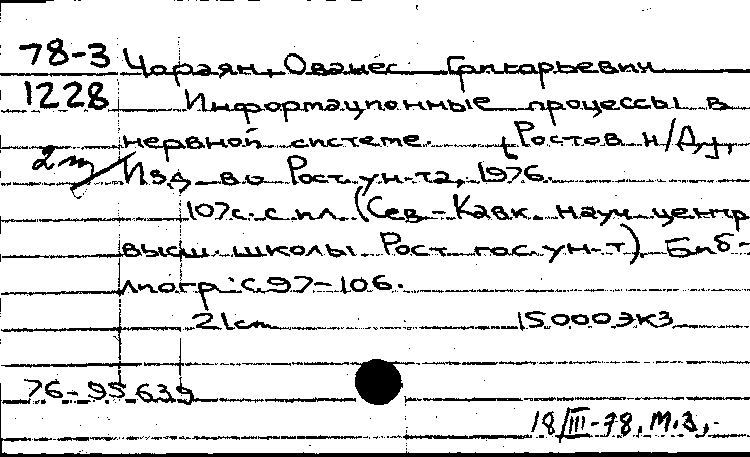 78-3 Чораян, Ованес Грикорьевич
1228 Информационные процессы в
нервной системе. [Ростов н/Д],
Изд-во Рост. ун-та, 1976.
107с. с ил. (Сев-Кавк. науч. центр
высш. школы. Рост гос. ун-т). Биб-
лиогр: с. 97-106.
21cm 15000экз
76-95639
18/III-78, М.З,-